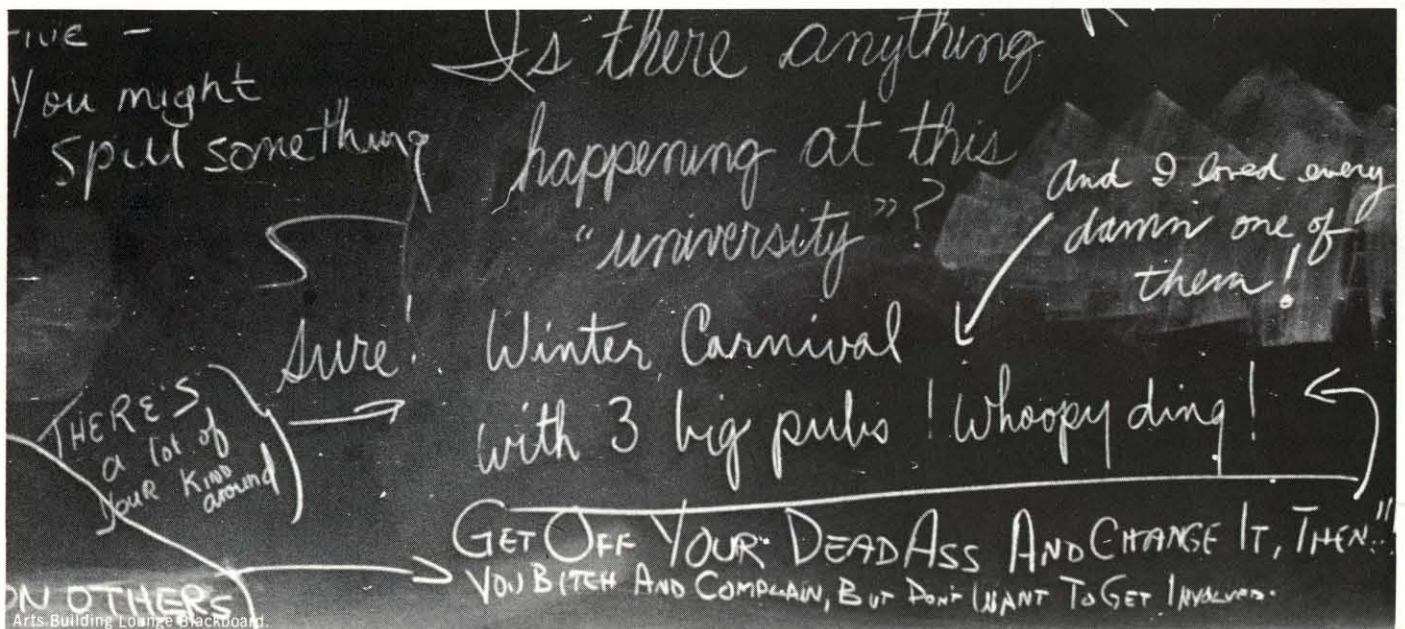 You might
Spill something
Is there anything
happening at this
"university"?
And I loved every
damn one of
them!
Sure! Winter Carnival
with 3 big pubs! Whoopy ding!
THERE'S
a lot of
YOUR KIND
around
GET OFF YOUR DEAD ASS AND CHANGE IT, THEN!!
YOU BITCH AND COMPLAIN, BUT DON'T WANT TO GET INVOLVED.
ON OTHERS
Arts Building Lounge Blackboard.